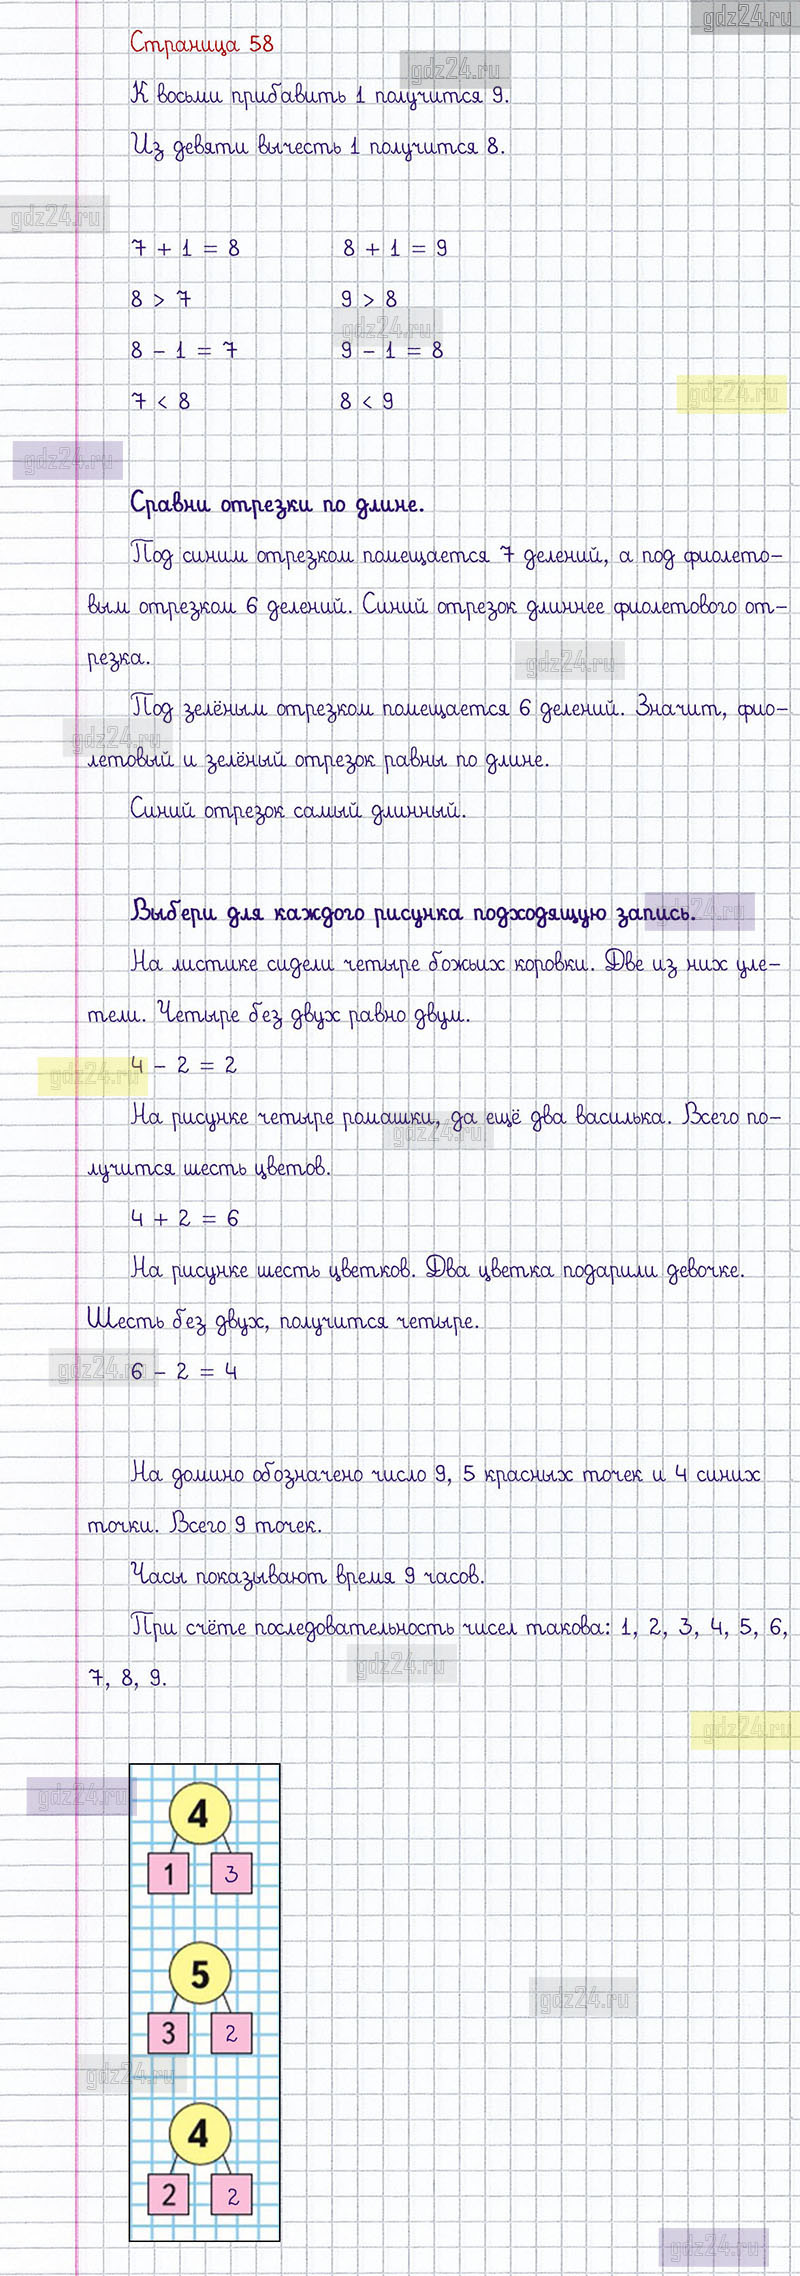 gdz24.ru
Страница 58
gdz24.ru
К восьми прибавить 1 получится 9.
Из девяти вычесть 1 получится 8.
gdz24.ru
7 + 1 = 8 8 + 1 = 9
8 > 7 9 > 8
gdz24.ru
8 - 1 = 7 9 - 1 = 8
7 < 8 8 < 9
gdz24.ru
gdz24.ru
Сравни отрезки по длине.
Под синим отрезком помещается 7 делений, а под фиолето-
вым отрезком 6 делений. Синий отрезок длиннее фиолетового от-
резка.
gdz24.ru
Под зелёным отрезком помещается 6 делений. Значит, фио-
gdz24.ru
летовый и зелёный отрезок равны по длине.
Синий отрезок самый длинный.
Выбери для каждого рисунка подходящую запись.
gdz24.ru
На листике сидели четыре божьих коровки. Две из них уле-
тели. Четыре без двух равно двум.
4 - 2 = 2
gdz24.ru
На рисунке четыре ромашки, да ещё два василька. Всего по-
gdz24.ru
лучится шесть цветов.
4 + 2 = 6
На рисунке шесть цветков. Два цветка подарили девочке.
Шесть без двух, получится четыре.
gdz24.ru
6 - 2 = 4
На домино обозначено число 9, 5 красных точек и 4 синих
точки. Всего 9 точек.
Часы показывают время 9 часов.
При счёте последовательность чисел такова: 1, 2, 3, 4, 5, 6,
gdz24.ru
7, 8, 9.
gdz24.ru
gdz24.ru
4
1 3
5
gdz24.ru
3 2
gdz24.ru
4
2 2
gdz24.ru